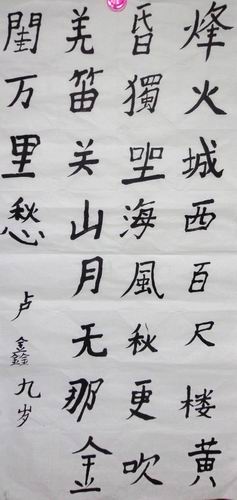 烽火城西百尺楼黄
昏獨坐海風秋更吹
羌笛关山月无那金
閨万里愁
卢鑫九岁